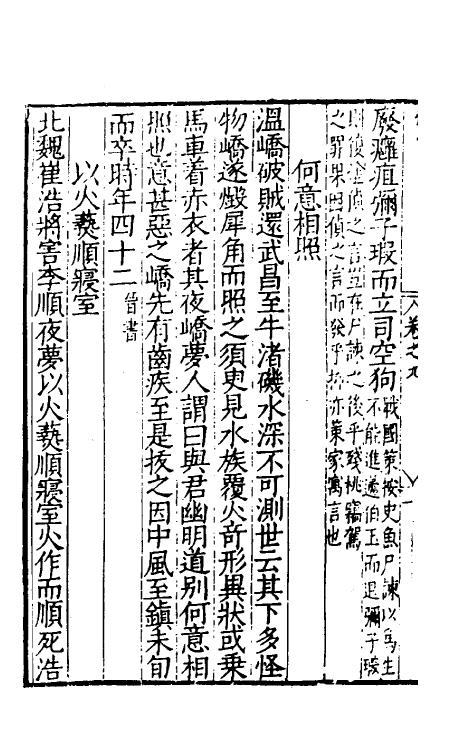 卷之九
廢癰疽彌子瑕而立司空狗
戰國策按史魚尸諫以爲生
不能進蘧伯玉而退彌子瑕
則復塗偵之言豈在尸諫之後乎殘桃竊駕
之罪果因偵之言而發乎抑亦策家寓言也
何意相照
溫嶠破賊還武昌至牛渚磯水深不可測世云其下多怪
物嶠遂燬犀角而照之須臾見水族覆火奇形異狀或乗
馬車着赤衣者其夜嶠夢人謂曰與君幽明道别何意相
照也意甚惡之嶠先有齒疾至是拔之因中風至鎮未旬
而卒時年四十二晉書
以火爇順寢室
北魏崔浩將害李順夜夢以火爇順寢室火作而順死浩